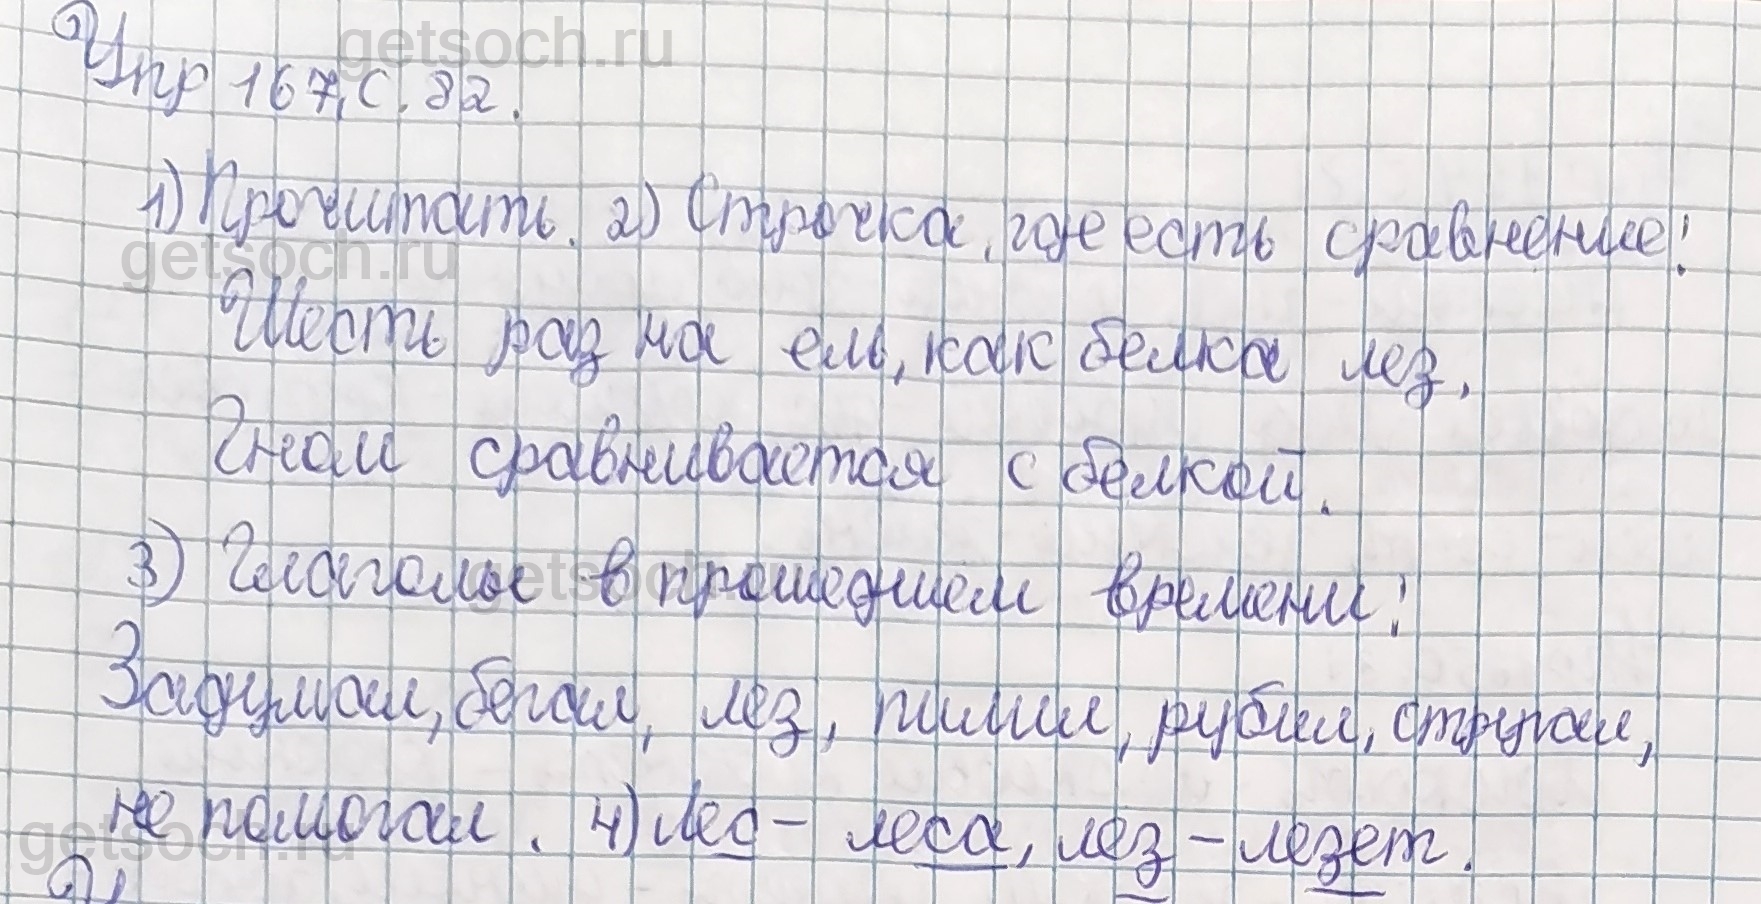 getsoch.ru
Упр 167, с. 82.
1) Прочитать. 2) Строчка, где есть сравнение:
getsoch.ru
Шесть раз на ель, как белка лез,
Гном сравнивается с белкой.
3) Глаголы в прошедшем времени:
getsoch.ru
Задумал, бегал, лез, пилил, рубил, стругал,
не помогал. 4) Лес - леса, лез - лезет.
getsoch.ru